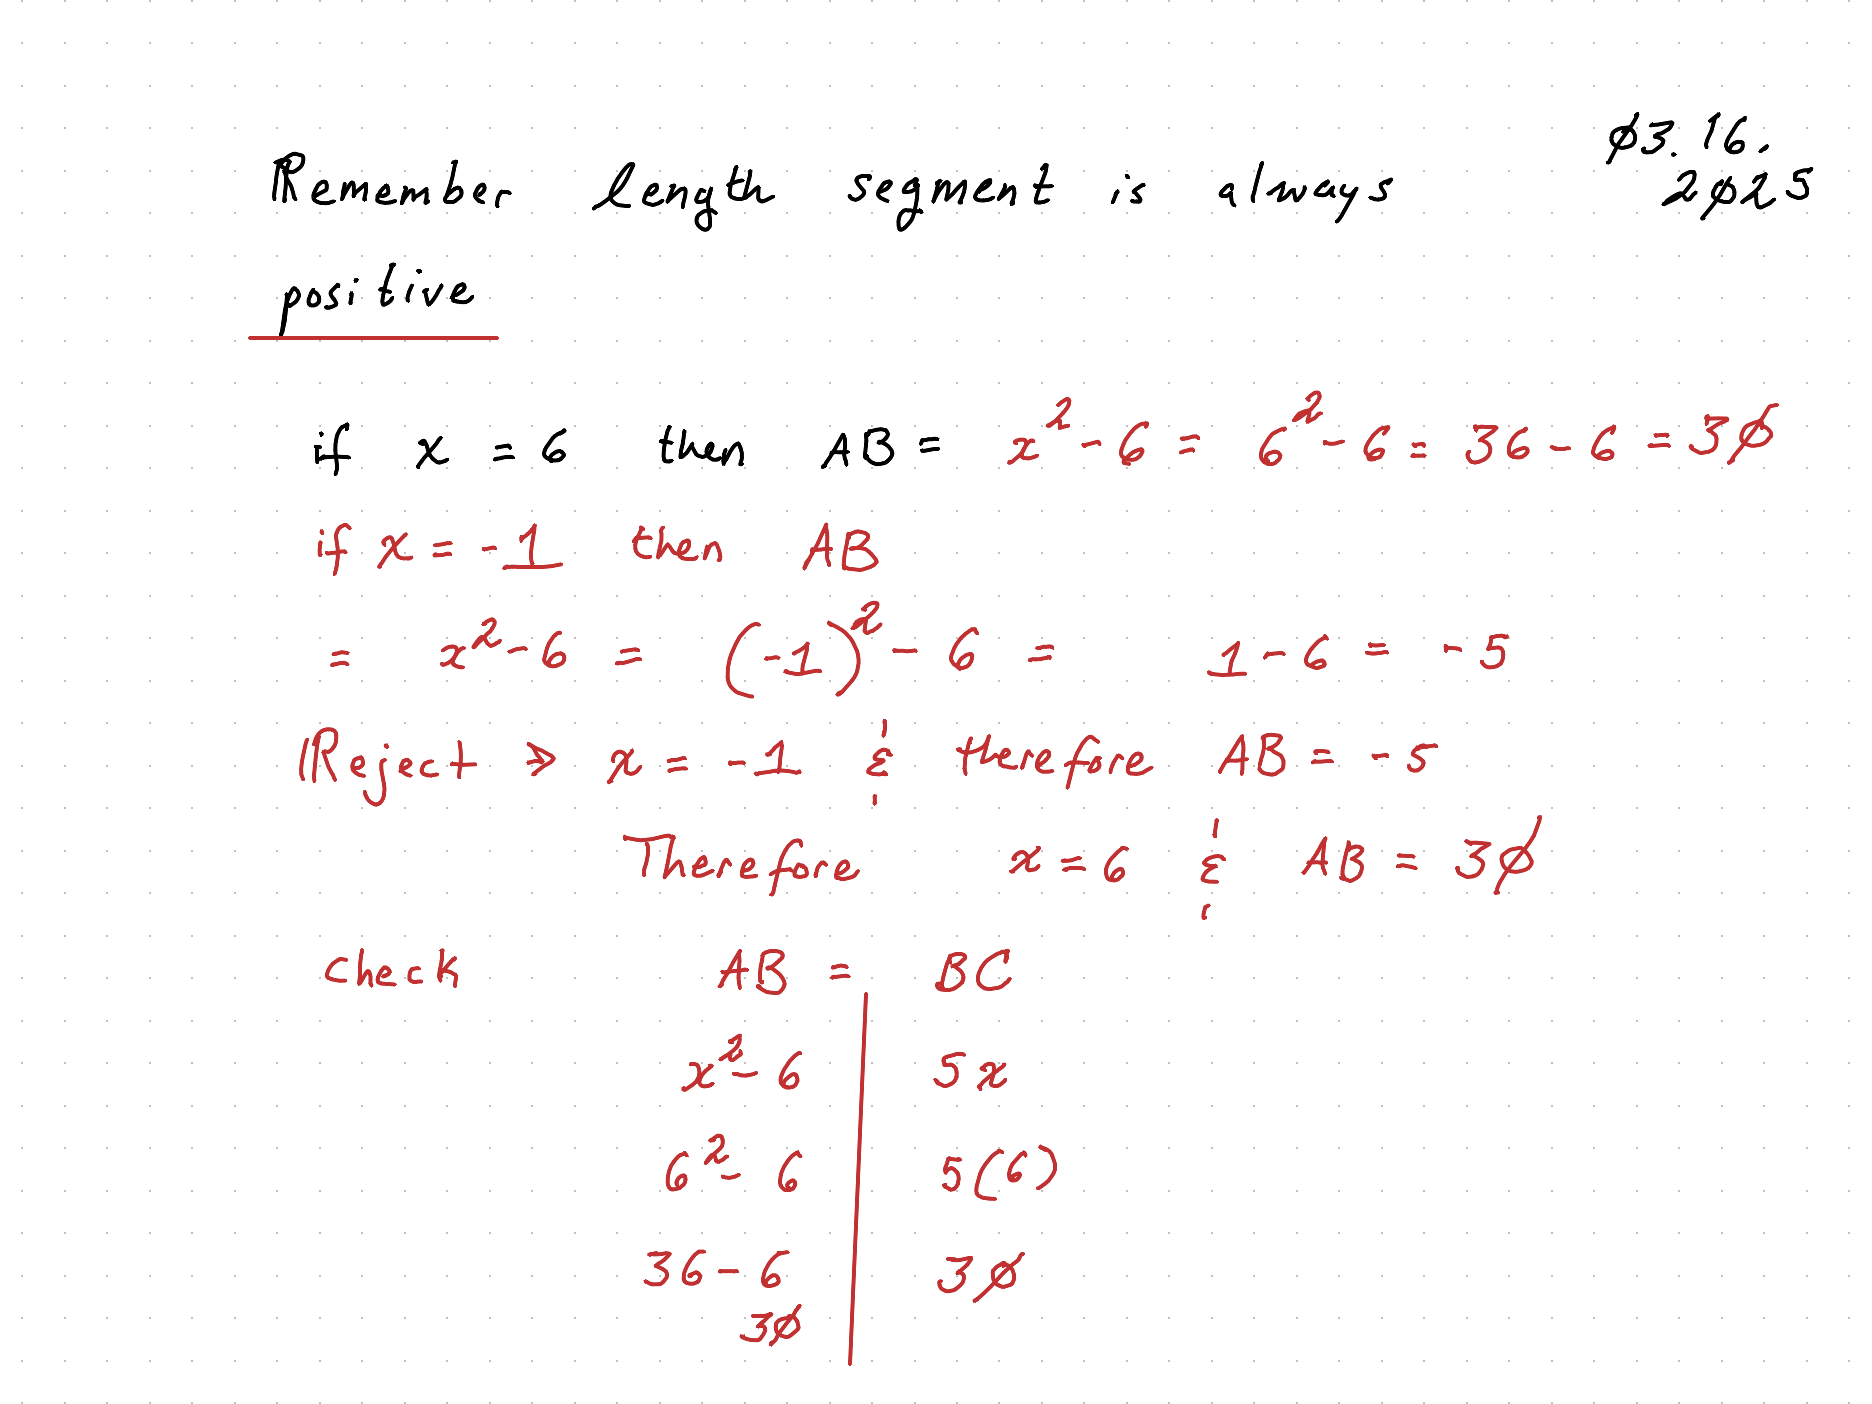 Remember length segment is always
positive
ø3.16.
2ø25
if x = 6 then AB = x² - 6 = 6² - 6 = 36 - 6 = 3ø
if x = -1 then AB
= x² - 6 = (-1)² - 6 = 1 - 6 = -5
Reject → x = -1 & therefore AB = -5
Therefore x = 6 & AB = 3ø
check AB = BC
x² - 6 | 5x
6² - 6 | 5(6)
36 - 6 | 3ø
3ø